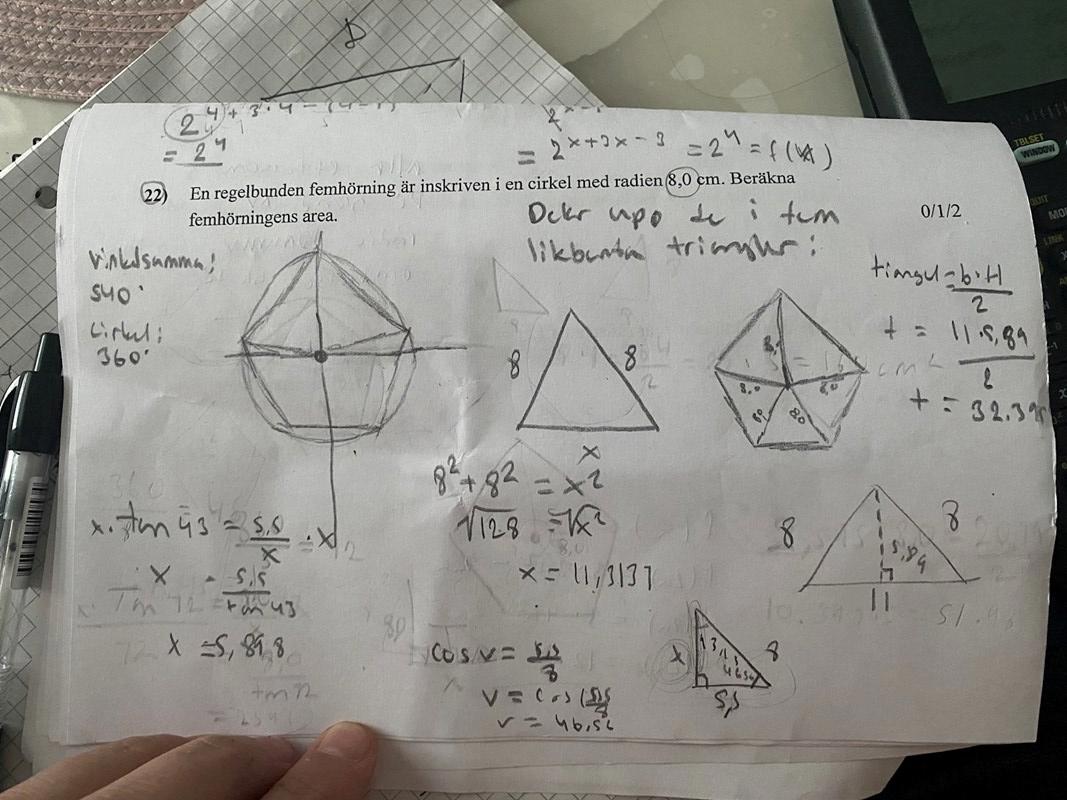 D
2⁴ + 3·4 - (4-1)
= 2⁴
= 2ˣ⁺³ˣ⁻³ = 2⁴ = f(x)
22) En regelbunden femhörning är inskriven i en cirkel med radien 8,0 cm. Beräkna
femhörningens area.
0/1/2
Delar upp de i fem
likbenta trianglar:
Vinkelsumma:
540°
Cirkel:
360°
8
8
x
8,0
8,0
8,0
8,0
triangel = b·H
2
t = 11·5,89
2
t = 32.395
8² + 8² = x²
√128 = √x²
x = 11,3137
x · tan 43 = 5,5 · x
x
x = 5,5
tan 43
x = 5,898
cos v = 5,5
8
v = cos (5,5
8
v = 46,52
x
8
5,5
8
8
5,89
11
TBLSET
WINDOW